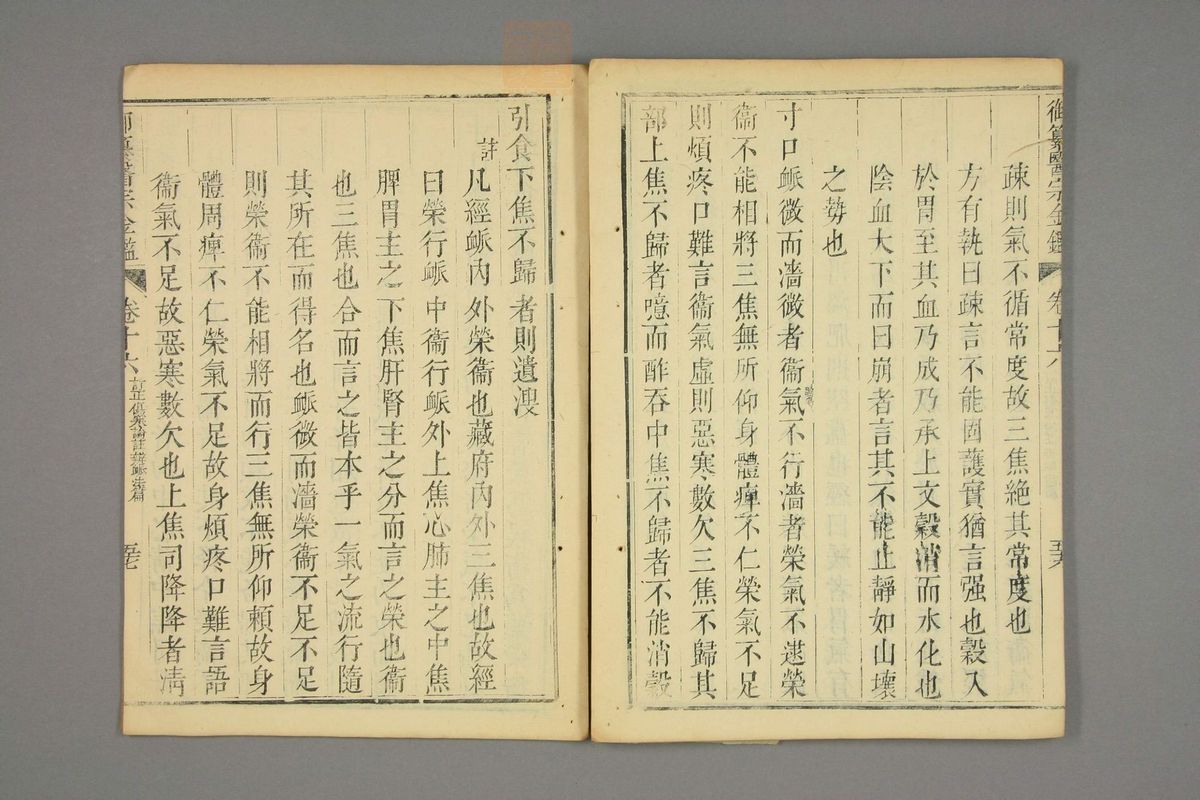 御纂醫宗金鑑 卷十六 五六
疎則氣不循常度故三焦絶其常度也
方有執曰疎言不能固護實猶言强也穀入
於胃至其血乃成乃承上文穀消而水化也
陰血大下而曰崩者言其不能止靜如山壊
之勢也
寸口脈微而濇微者衞氣不行濇者榮氣不逮榮
衞不能相將三焦無所仰身體痺不仁榮氣不足
則煩疼口難言衞氣虛則惡寒數欠三焦不歸其
部上焦不歸者噫而酢吞中焦不歸者不能消穀
引食下焦不歸者則遺溲
註 凡經脈內外榮衞也藏府內外三焦也故經
曰榮行脈中衞行脈外上焦心肺主之中焦
脾胃主之下焦肝腎主之分而言之榮也衞
也三焦也合而言之皆本乎一氣之流行隨
其所在而得名也脈微而濇榮衞不足不足
則榮衞不能相將而行三焦無所仰賴故身
體周痺不仁榮氣不足故身煩疼口難言語
衞氣不足故惡寒數欠也上焦司降降者淸
御纂醫宗金鑑 卷十六 訂正傷寒論註 五七